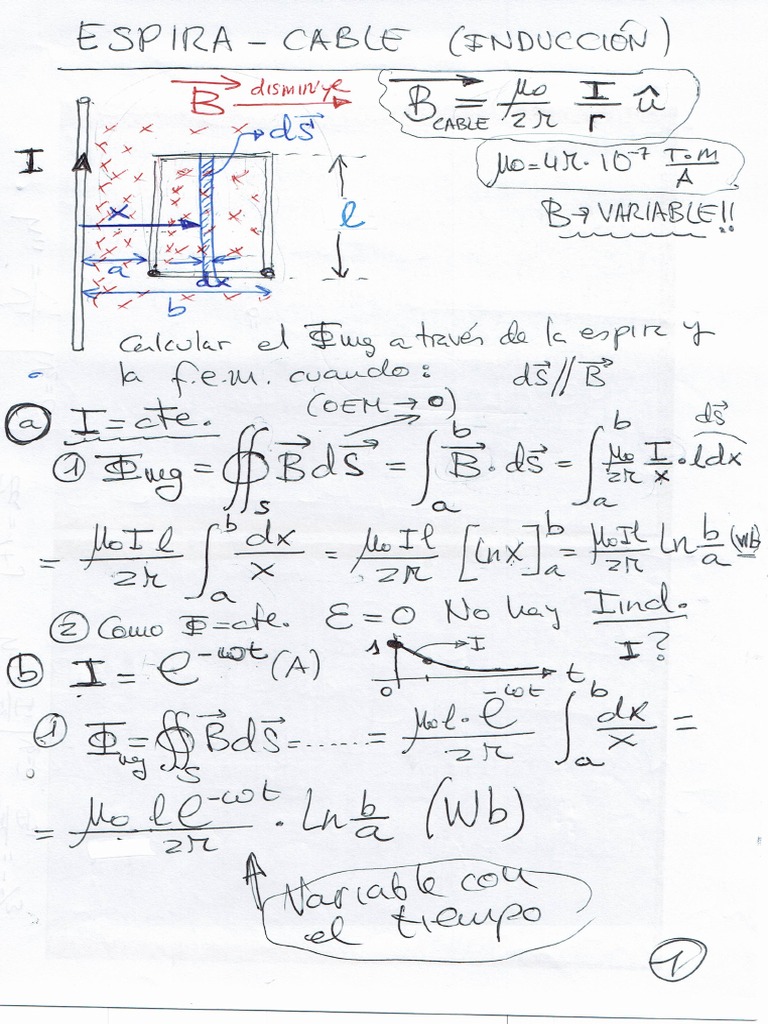 ESPIRA - CABLE (INDUCCIÓN)
B⃗ disminuye
B⃗ CABLE = μo/2π I/r û
dS⃗
I
μo = 4π·10⁻⁷ T·m/A
B → VARIABLE!!
x
l
a
dx
b
Calcular el Φmg a través de la espira y
la f.e.m. cuando: dS⃗ // B⃗
(OEM → 0)
a) I = cte.
① Φmg = ∯s B⃗ dS⃗ = ∫a^b B⃗ · dS⃗ = ∫a^b μo/2π I/x · l dx
dS⃗
= μo I l/2π ∫a^b dx/x = μo I l/2π [ln x]a^b = μo I l/2π ln b/a (Wb)
② Como Φ = cte. Ɛ = 0 No hay Iind.
I?
b) I = e^-ωt (A)
1 I t
0
① Φmg = ∯s B⃗ dS⃗ = ...... = μo l · e^-ωt/2π ∫a^b dx/x =
= μo l e^-ωt/2π · ln b/a (Wb)
Variable con
el tiempo
1